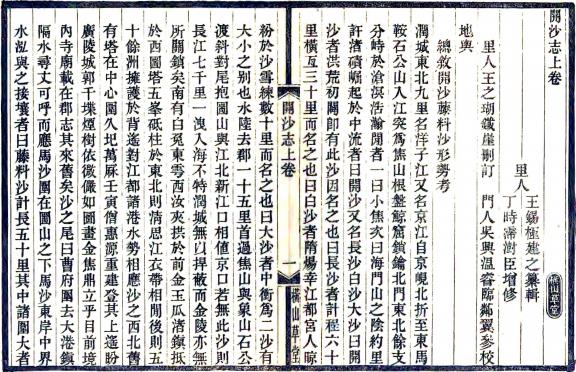 開沙志上卷
里人
王錫極建之纂輯
丁時霈澍臣增修
橫山草堂
里人王之瑚鐵崖刪訂　門人吳興溫睿臨鄰翼參校
地輿
總敘開沙藤料沙形勢考
潤城東北九里名洋子江又名京江自京峴北折至東馬
鞍石公山入江突為焦山根盤鯨窟鎖鑰北門東北餘支
分峙於滄溟浩瀚閒者一曰小焦次曰海門山之陰約里
許渚磧崛起於中流者曰開沙又名長沙白沙大沙曰開
沙者洪荒初闢即有此沙因名之也曰長沙者計程六十
里橫亙三十里而名之也曰白沙者隋煬幸江都宮人晾
開沙志上卷
一
橫山草堂
粉於沙雪練數十里而名之也曰大沙者中衝為二沙有
大小之別也水陸去郡一十五里首過焦山與象山石公
渡斜對尾抱圌山與江北新江口相值京口若無此沙則
長江七千里一洩入海不特潤城無以捍蔽而金陵亦無
所關鎖矣南有白兔東雩西汝夾拱於前金玉瓜渚鎮抵
於西圌塔五峯砥柱於東北則清思江衣帶相閒後則五
十餘洲擁護於背遙對江都諸港水勢相應沙之西北舊
有塔在中心圍久圮萬厤壬寅僧惠源重建登其上遙盼
廣陵城郭千堞煙樹依微儼如圖畫金焦鼎立乎目前境
內寺廟載在郡志其來舊矣沙之尾曰曹府圍去大港鎮
隔水尋丈可呼而應馬沙圍在圌山之下馬沙東岸中界
水泓與之接壤者曰藤料沙計長五十里其中諸圍大者